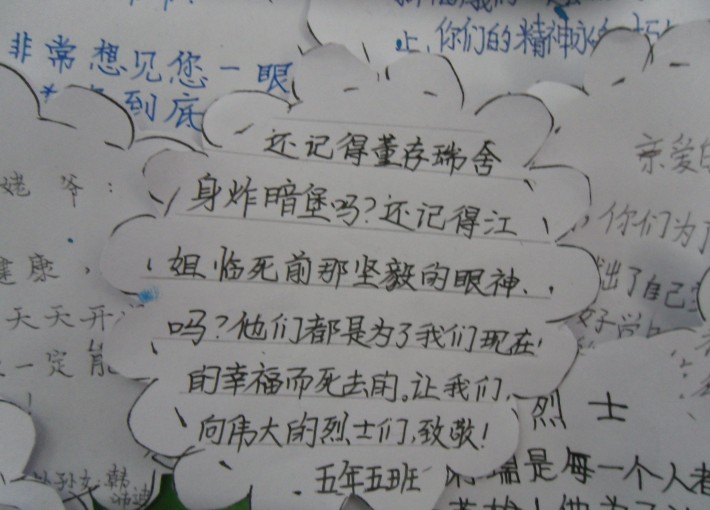 非常想见您一眼
到底
上,你们的精神永
姥爷:
健康,
天天开
一定能
!
外孙女:韩
还记得董存瑞舍
身炸暗堡吗?还记得江
姐临死前那坚毅的眼神
吗?他们都是为了我们现在
的幸福而死去的。让我们
向伟大的烈士们,致敬!
五年五班
亲爱的
你们为了
出了自己
好学
烈士
瑞是每一个人都